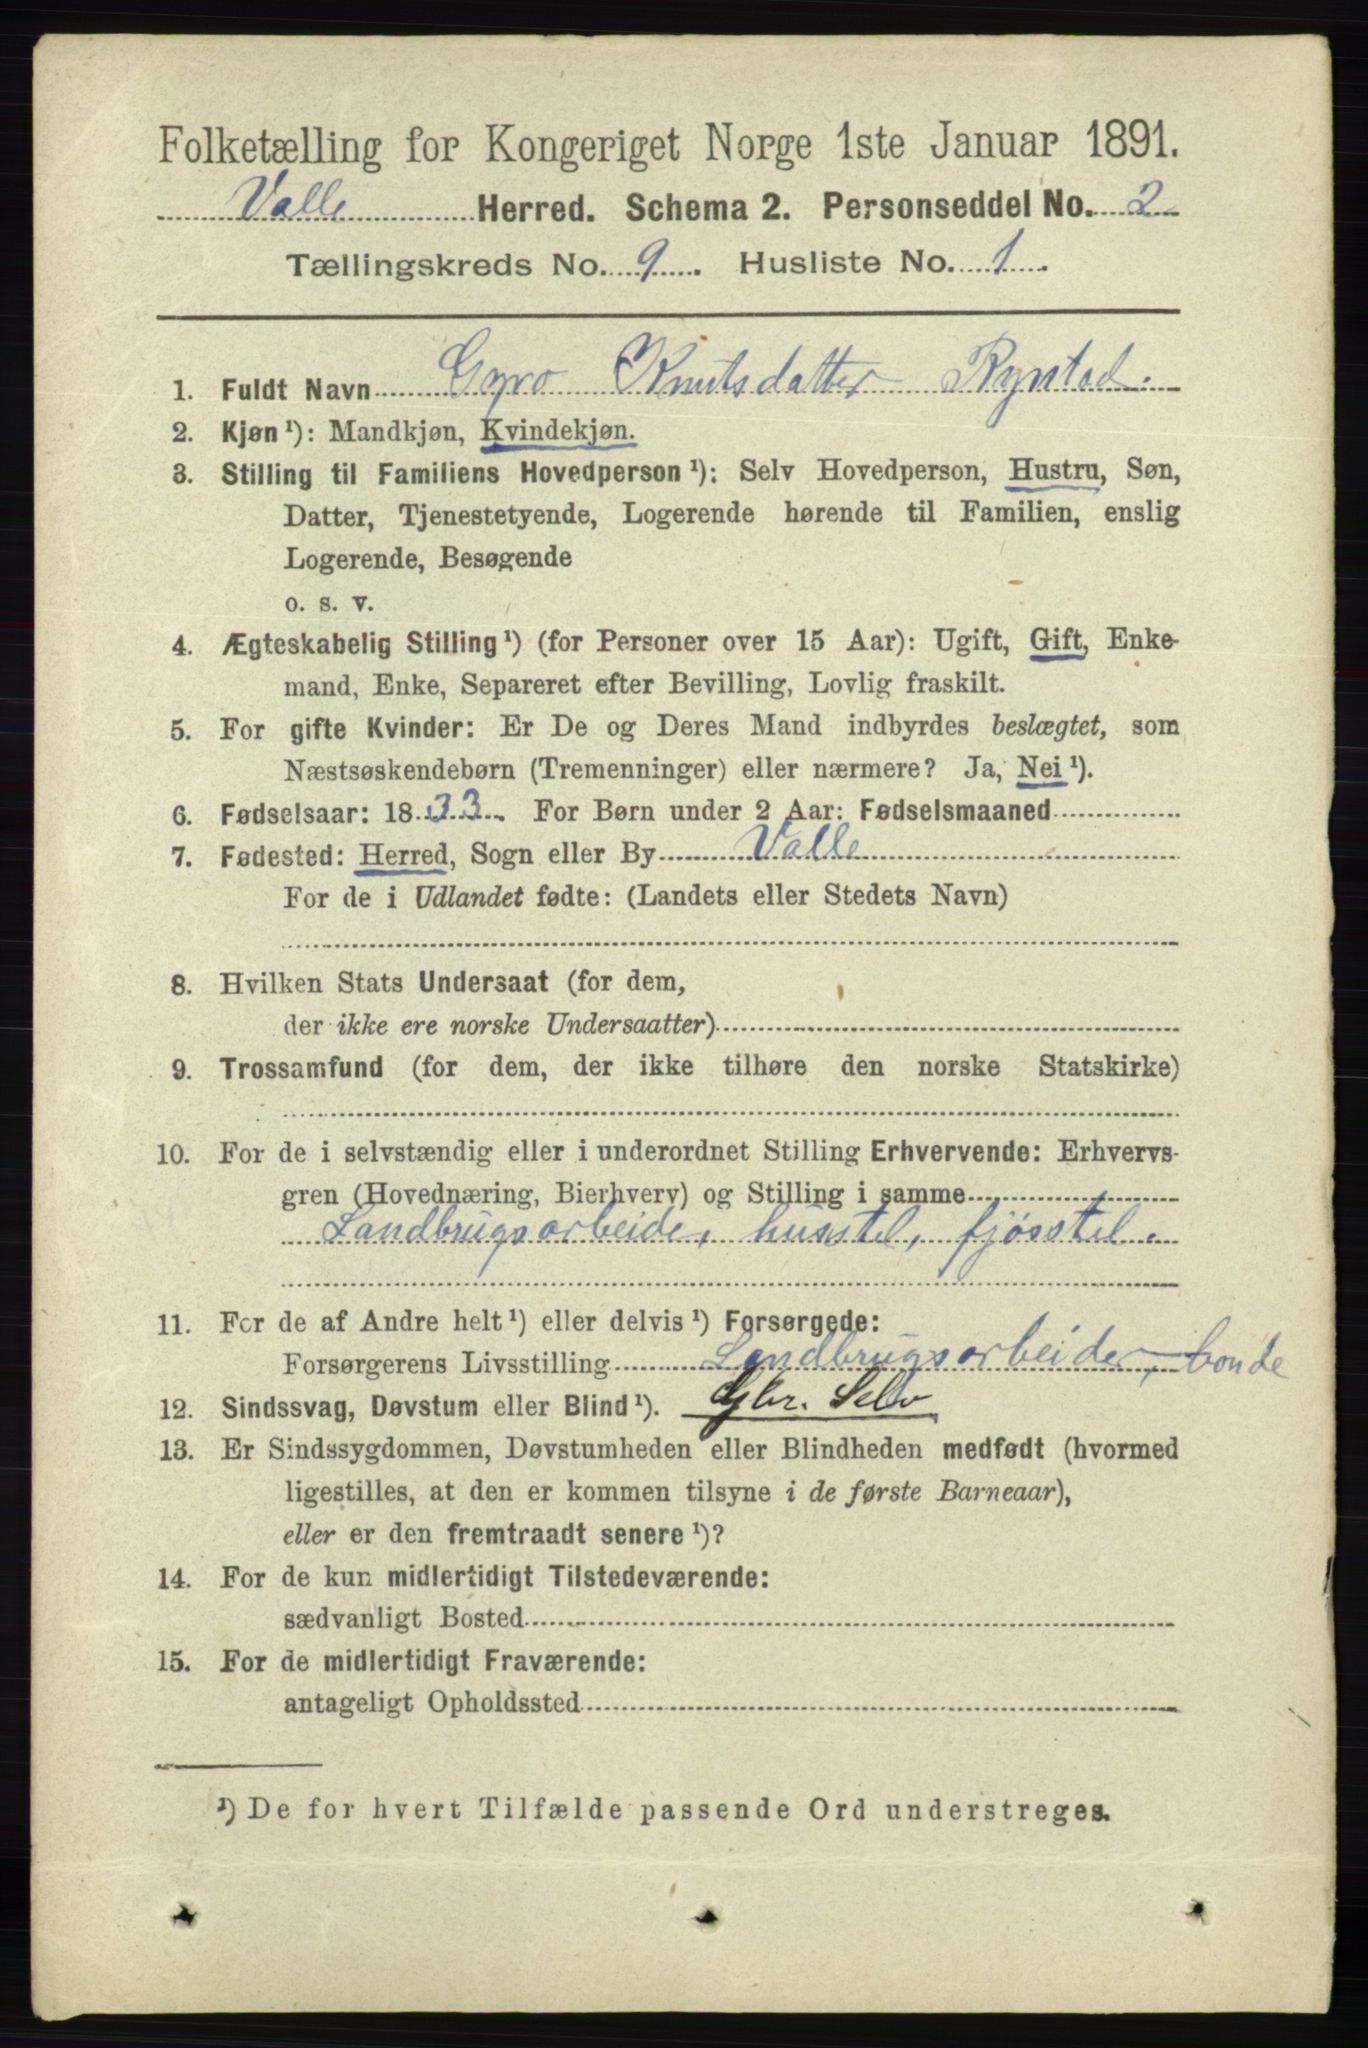 Folketælling for Kongeriget Norge 1ste Januar 1891.
Valle Herred. Schema 2. Personseddel No. 2
Tællingskreds No. 9. Husliste No. 1.
1. Fuldt Navn Gyro Knutsdatter Rysstad.
2. Kjøn ¹): Mandkjøn, Kvindekjøn.
3. Stilling til Familiens Hovedperson ¹): Selv Hovedperson, Hustru, Søn,
Datter, Tjenestetyende, Logerende hørende til Familien, enslig
Logerende, Besøgende
o. s. v.
4. Ægteskabelig Stilling ¹) (for Personer over 15 Aar): Ugift, Gift, Enke-
mand, Enke, Separeret efter Bevilling, Lovlig fraskilt.
5. For gifte Kvinder: Er De og Deres Mand indbyrdes beslægtet, som
Næstsøskendebørn (Tremenninger) eller nærmere? Ja, Nei ¹).
6. Fødselsaar: 1833. For Børn under 2 Aar: Fødselsmaaned
7. Fødested: Herred, Sogn eller By Valle
For de i Udlandet fødte: (Landets eller Stedets Navn)
8. Hvilken Stats Undersaat (for dem,
der ikke ere norske Undersaatter)
9. Trossamfund (for dem, der ikke tilhøre den norske Statskirke)
10. For de i selvstændig eller i underordnet Stilling Erhvervende: Erhvervs-
gren (Hovednæring, Bierhverv) og Stilling i samme
Landbrugsarbeide, husstel, fjósstel.
11. For de af Andre helt ¹) eller delvis ¹) Forsørgede:
Forsørgerens Livsstilling Landbrugsarbeider, bonde
12. Sindssvag, Døvstum eller Blind ¹). Gbr. Selv
13. Er Sindssygdommen, Døvstumheden eller Blindheden medfødt (hvormed
ligestilles, at den er kommen tilsyne i de første Barneaar),
eller er den fremtraadt senere ¹)?
14. For de kun midlertidigt Tilstedeværende:
sædvanligt Bosted
15. For de midlertidigt Fraværende:
antageligt Opholdssted
¹) De for hvert Tilfælde passende Ord understreges.